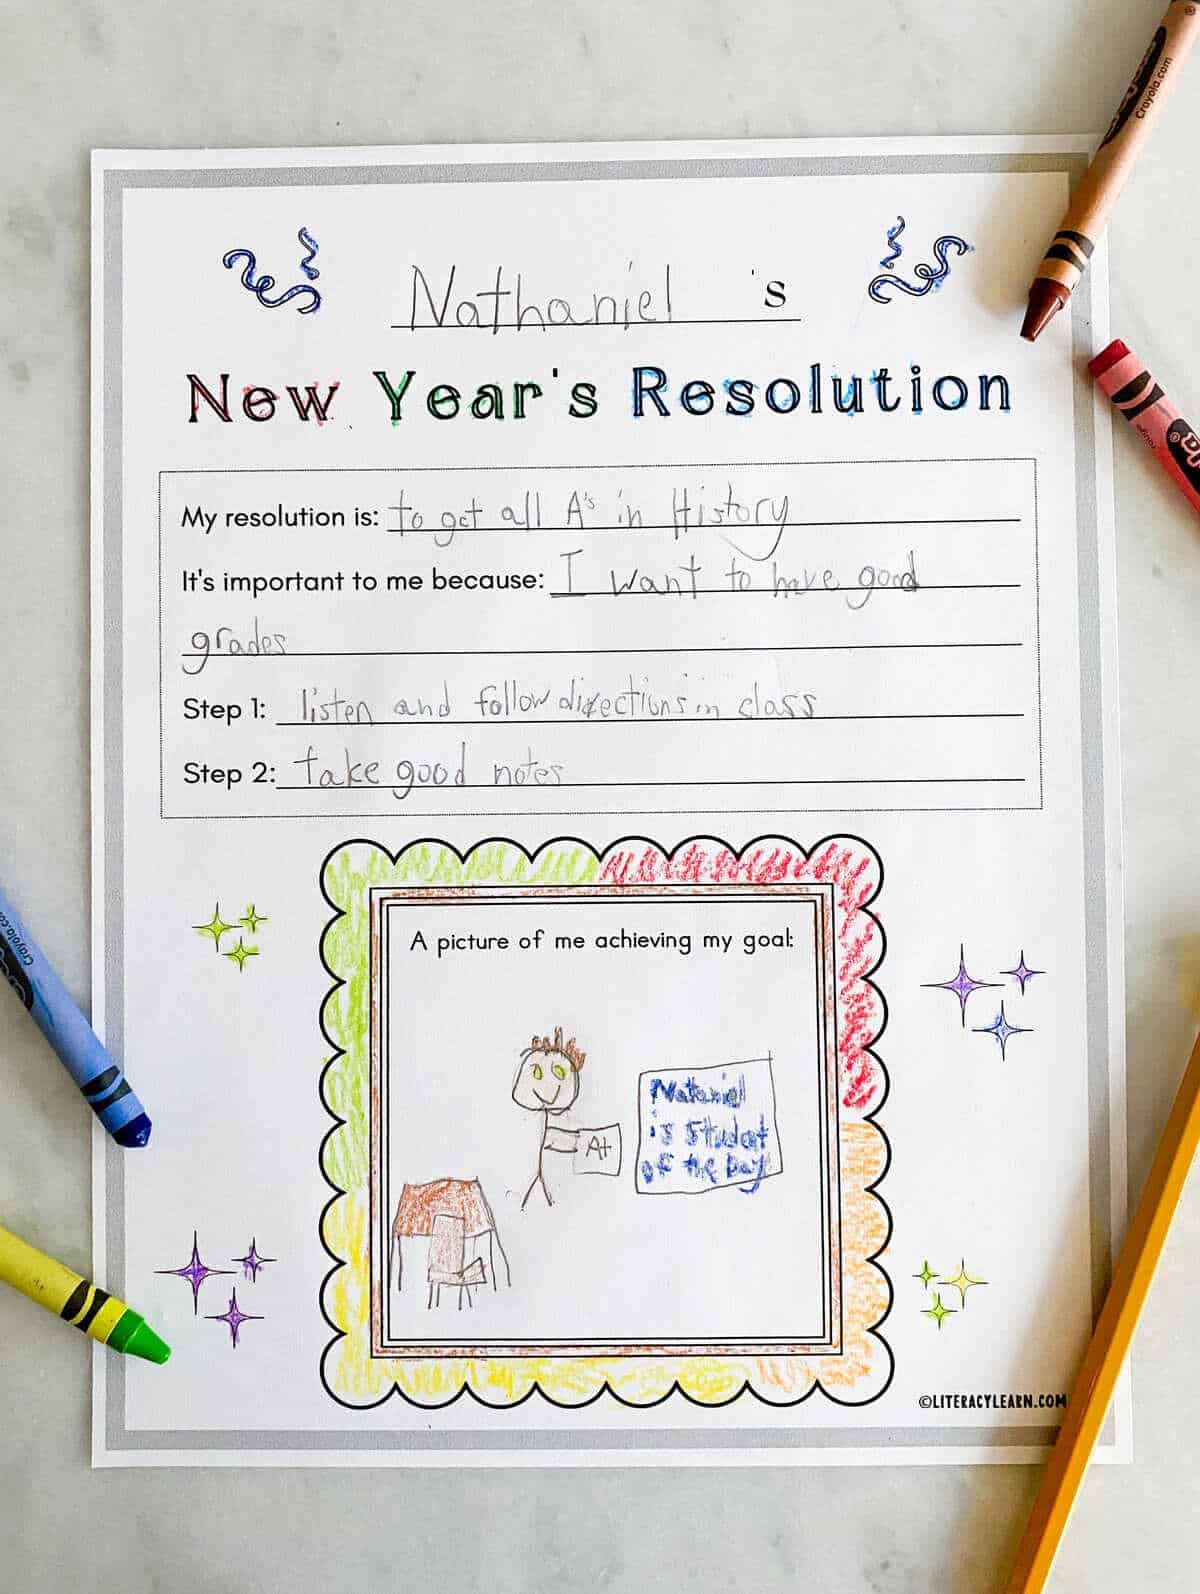 Nathaniel 's
New Year's Resolution
My resolution is: to get all A's in History
It's important to me because: I want to have good
grades
Step 1: listen and follow directions in class
Step 2: take good notes
A picture of me achieving my goal:
A+
Nataniel
is Student
of the Day
©LITERACYLEARN.COM
Crayola.com
Crayola.com
rouge